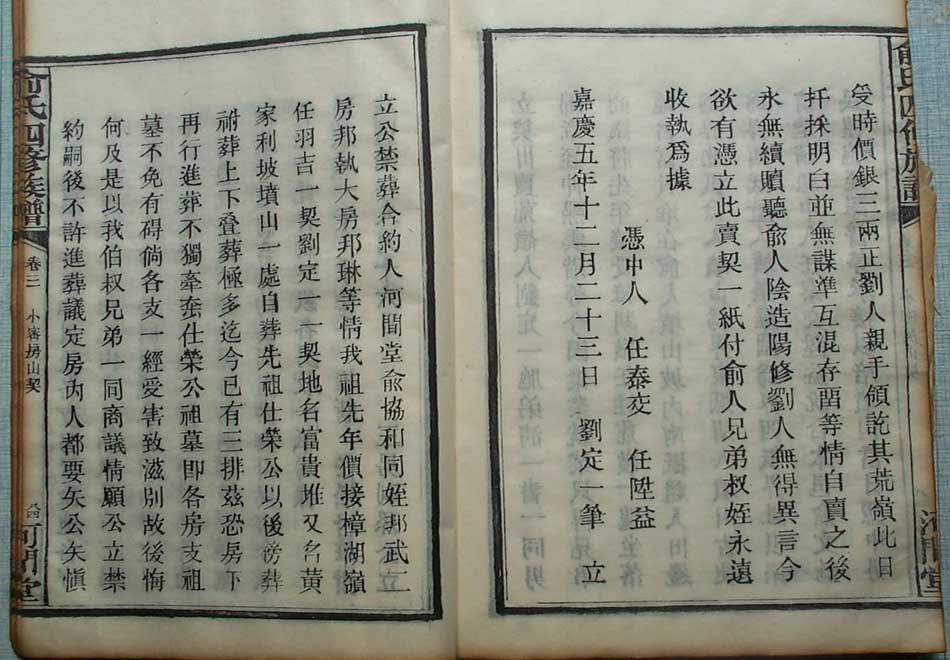 俞氏四修族譜
河間堂
受時價銀三兩正劉人親手領訖其荒嶺此日
扦採明白並無謀準互混存畱等情自賣之後
永無續贖聽俞人陰造陽修劉人無得異言今
欲有憑立此賣契一紙付俞人兄弟叔姪永遠
收執爲據
憑中人 任泰交 任陞益
嘉慶五年十二月二十三日 劉定一筆 立
立公禁葬合約人河間堂俞協和同姪邦武二
房邦執大房邦琳等情我祖先年價接樟湖嶺
任羽吉一契劉定一六契地名富貴堆又名黃
家利坡墳山一處自葬先祖仕榮公以後傍葬
祔葬上下叠葬極多迄今已有三排茲恐房下
再行進葬不獨牽牽仕榮公祖墓即各房支祖
墓不免有碍倘各支一經愛害致滋別故後悔
何及是以我伯叔兄弟一同商議情願公立禁
約嗣後不許進葬議定房內人都要矢公矢愼
俞氏四修族譜 卷三 小寨房山契 河間堂